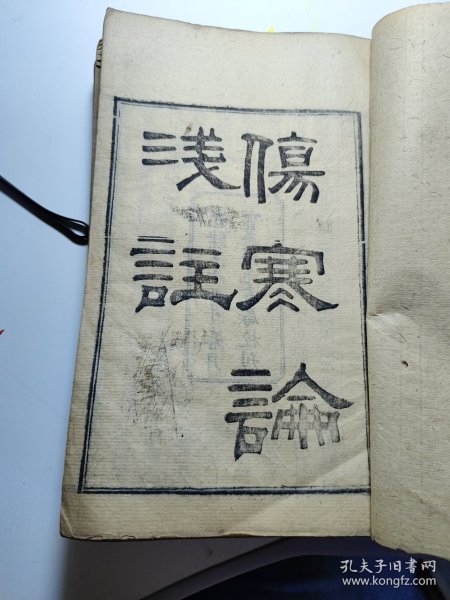 傷寒論
淺註
孔夫子旧书网
www.kongfz.com